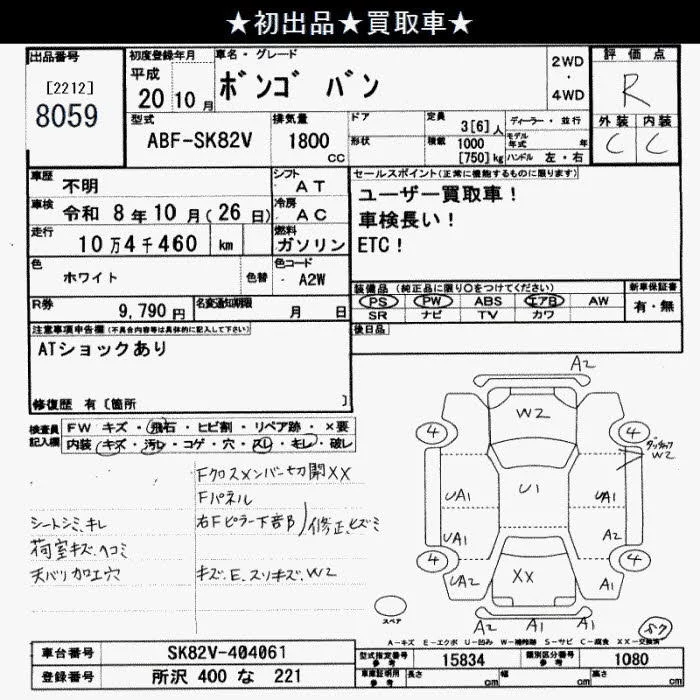 ★初出品★買取車★
出品番号
[2212]
8059
初度登録年月
平成
20年10月
車名・グレード
ボンゴ バン
2WD
・
4WD
評価点
R
外装 内装
C C
型式
ABF-SK82V
排気量
1800
cc
ドア
形状
定員
3[6]人
積載
1000
[750]kg
ディーラー・並行
モデル
年式 年
ハンドル 左・右
車歴
不明
シフト
AT
車検
令和 8年10月(26日)
冷房
AC
走行
10万4千460 km
燃料
ガソリン
色
ホワイト
色替
色コード
A2W
R券
9,790円
名変通知期限
月 日
セールスポイント(正常に機能するものに限ります)
ユーザー買取車！
車検長い！
ETC！
装備品 (純正品に限り○をつけてください)
PS PW ABS エアB AW
SR ナビ TV カワ
新車保証書
有・無
後日品
注意事項申告欄(不具合内容等は具体的に記入して下さい)
ATショックあり
修復歴 有 [箇所 ]
検査員
記入欄
FW キズ・飛石・ヒビ割・リペア跡・×要
内装・キズ・汚レ・コゲ・穴・スレ・キレ・破レ
Fクロスメンバー切開XX
Fパネル
シートシミ、キレ
右Fピラー下部 修正、ヒズミ
荷室キズ、ヘコミ
天バリ加工穴
キズ、E、スリキズ、W2
A2
W2
4 4
W2
UA1 U1 UA1
UA1 A2
4 4
UA2 XX A1
A2 A1 A1
スペア
A-キズ E-エクボ U-凹み W-補修跡 S-サビ C-腐食 XX-交換済
車台番号
SK82V-404061
登録番号
所沢 400 な 221
型式指定番号
参考
15834
類別区分番号
参考
1080
車庫証明用
参考
長さ cm
幅 cm
高さ cm